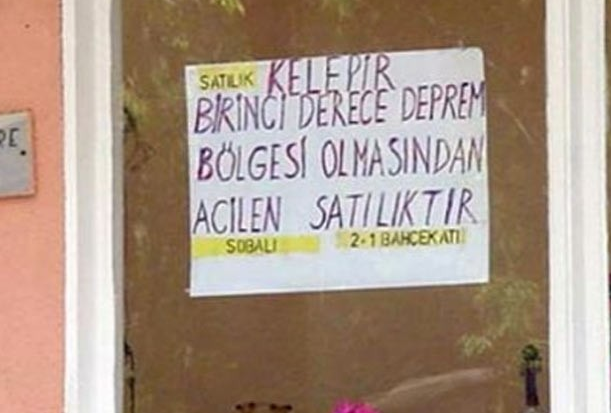 SATILIK KELEPİR
BİRİNCİ DERECE DEPREM
BÖLGESİ OLMASINDAN
ACİLEN SATILIKTIR
SOBALI 2+1 BAHÇEKATI
RE